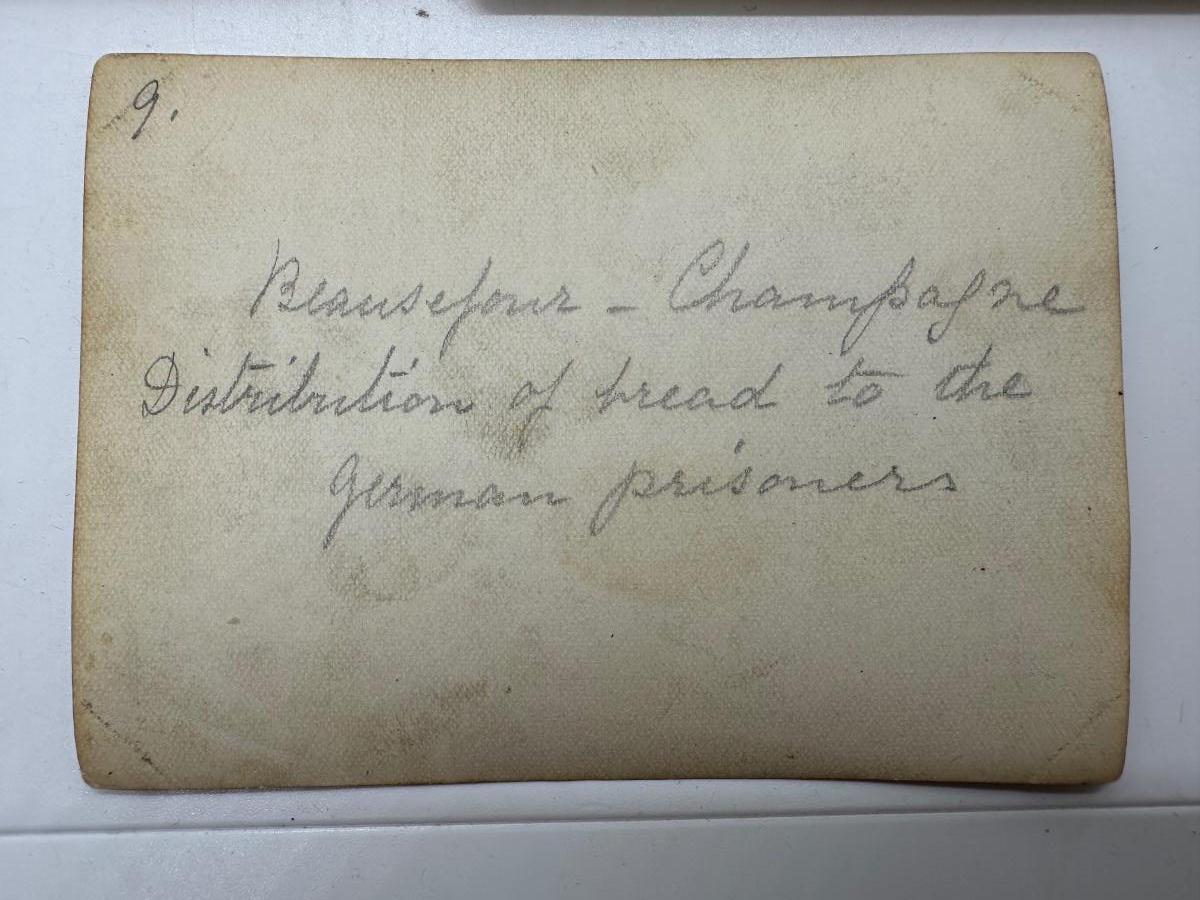 9.
Beausejour - Champagne
Distribution of bread to the
German prisoners